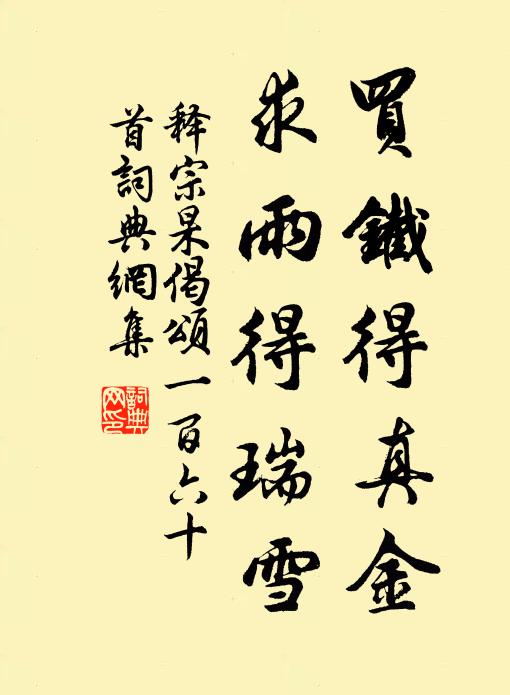 買鐵得真金
求雨得瑞雪
释宗杲偈頌一百六十
首詞典網集
詞典网印